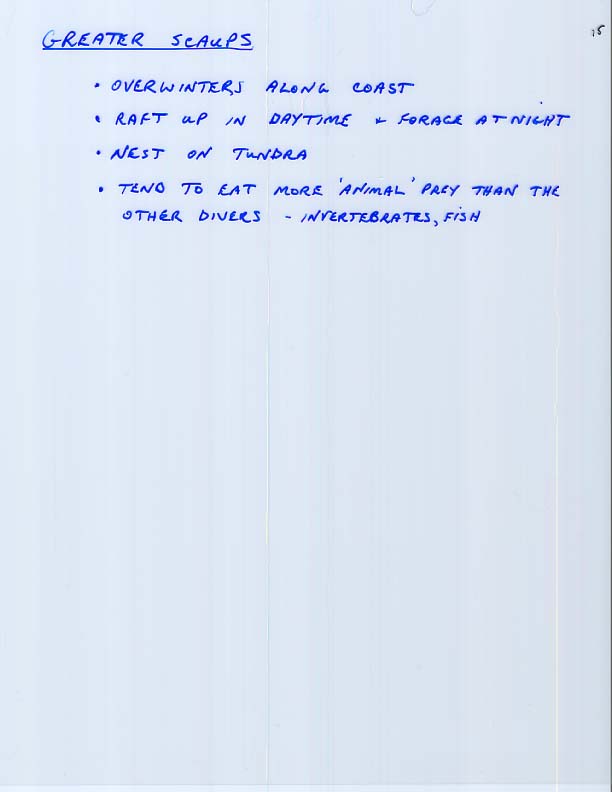 15
GREATER SCAUPS
• OVERWINTERS ALONG COAST
• RAFT UP IN DAYTIME & FORAGE AT NIGHT
• NEST ON TUNDRA
• TEND TO EAT MORE 'ANIMAL' PREY THAN THE
OTHER DIVERS - INVERTEBRATES, FISH